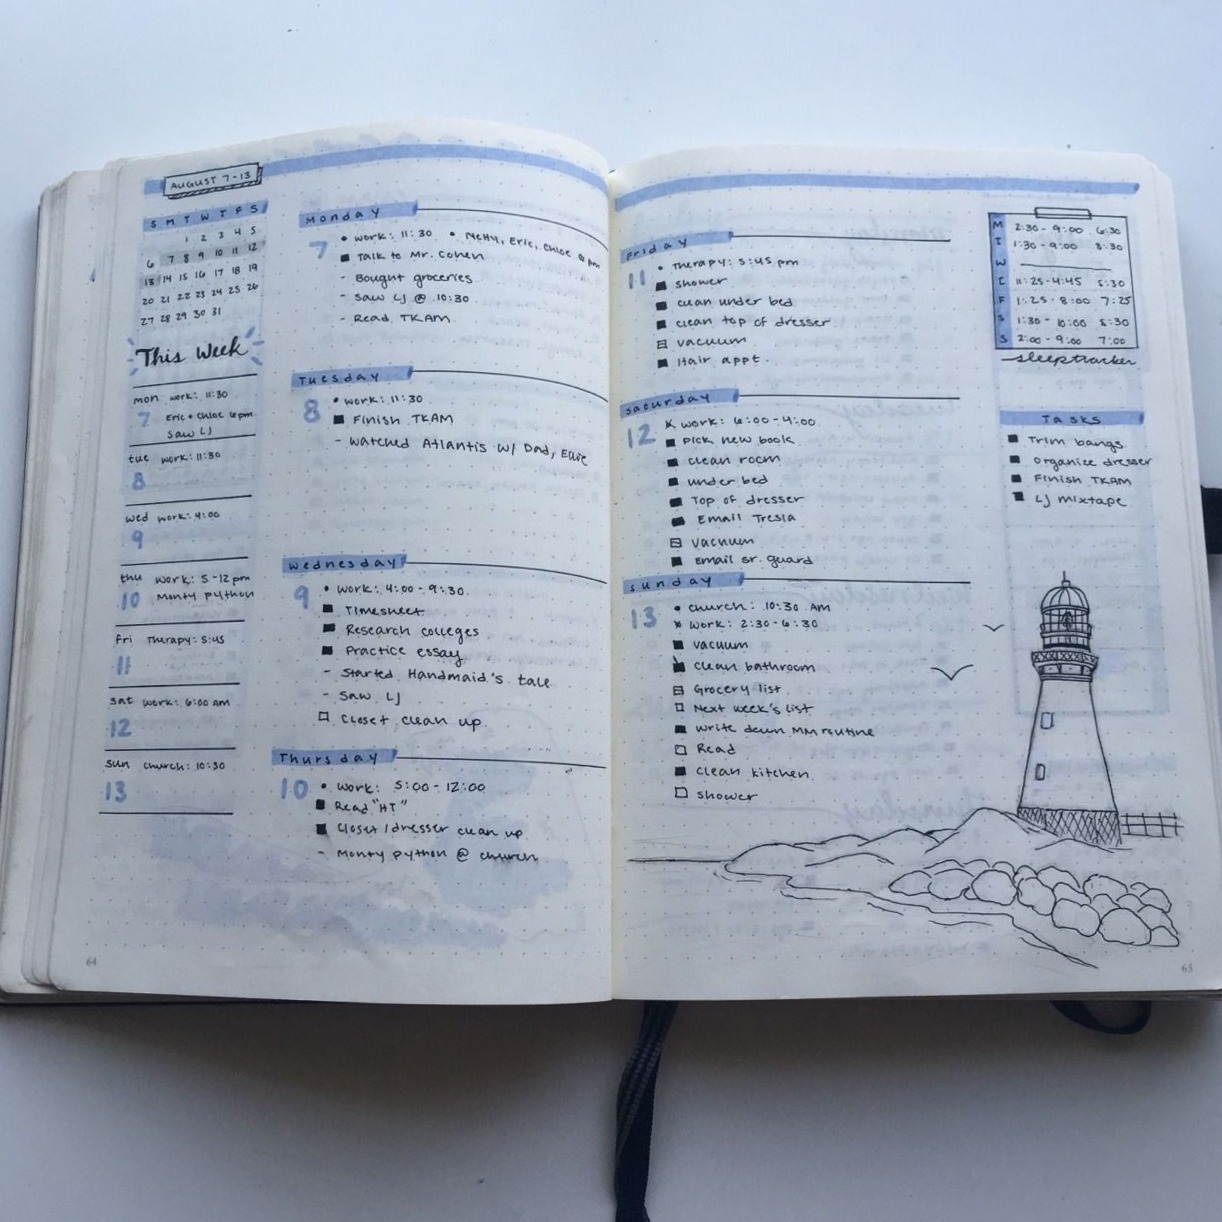 AUGUST 7-13
S M T W T F S
1 2 3 4 5
6 7 8 9 10 11 12
13 14 15 16 17 18 19
20 21 22 23 24 25 26
27 28 29 30 31
This Week
mon work: 11:30
7 Eric + Chloe 6pm
Saw LJ
tue work: 11:30
8
wed work: 4:00
9
thu work: 5-12 pm
10 Monty python
Fri Therapy: 5:45
11
sat work: 6:00 am
12
sun church: 10:30
13
Monday
7
• work: 11:30 • Melly, Eric, Chloe @ 6pm
■ Talk to Mr. Cohen
- Bought groceries
- Saw LJ @ 10:30
- Read TKAM
Tuesday
8
• work: 11:30
■ Finish TKAM
- Watched Atlantis w/ Dad,
Wednesday
9
• work: 4:00-9:30
■ Timesheet
■ Research colleges
■ Practice essay
- Started Handmaid's tale
- Saw LJ
□ Closet clean up
Thursday
10
• work: 5:00-12:00
■ Read "HT"
■ Closet/dresser clean up
- Monty python @ church
64
Friday
11
• Therapy: 5:45 pm
■ shower
■ clean under bed
■ clean top of dresser
vacuum
■ Hair appt.
Saturday
12
x work: 6:00-4:00
■ Pick new book
■ clean room
■ under bed
■ Top of dresser
■ Email Tresla
vacuum
■ Email sr. guard
Sunday
13
• church: 10:30 AM
x work: 2:30-6:30
■ vacuum
■ clean bathroom
Grocery list
Next week's list
■ write down MM routine
□ Read
■ clean kitchen
□ shower
M 2:30-9:00 6:30
T 1:30-9:00 8:30
W
1:25-4:45 5:30
F 1:25-8:00 7:25
S 1:30-10:00 8:30
S 2:00-9:00 7:00
sleeptracker
Tasks
■ Trim bangs
■ Organize dresser
■ Finish TKAM
■ LJ mixtape
63